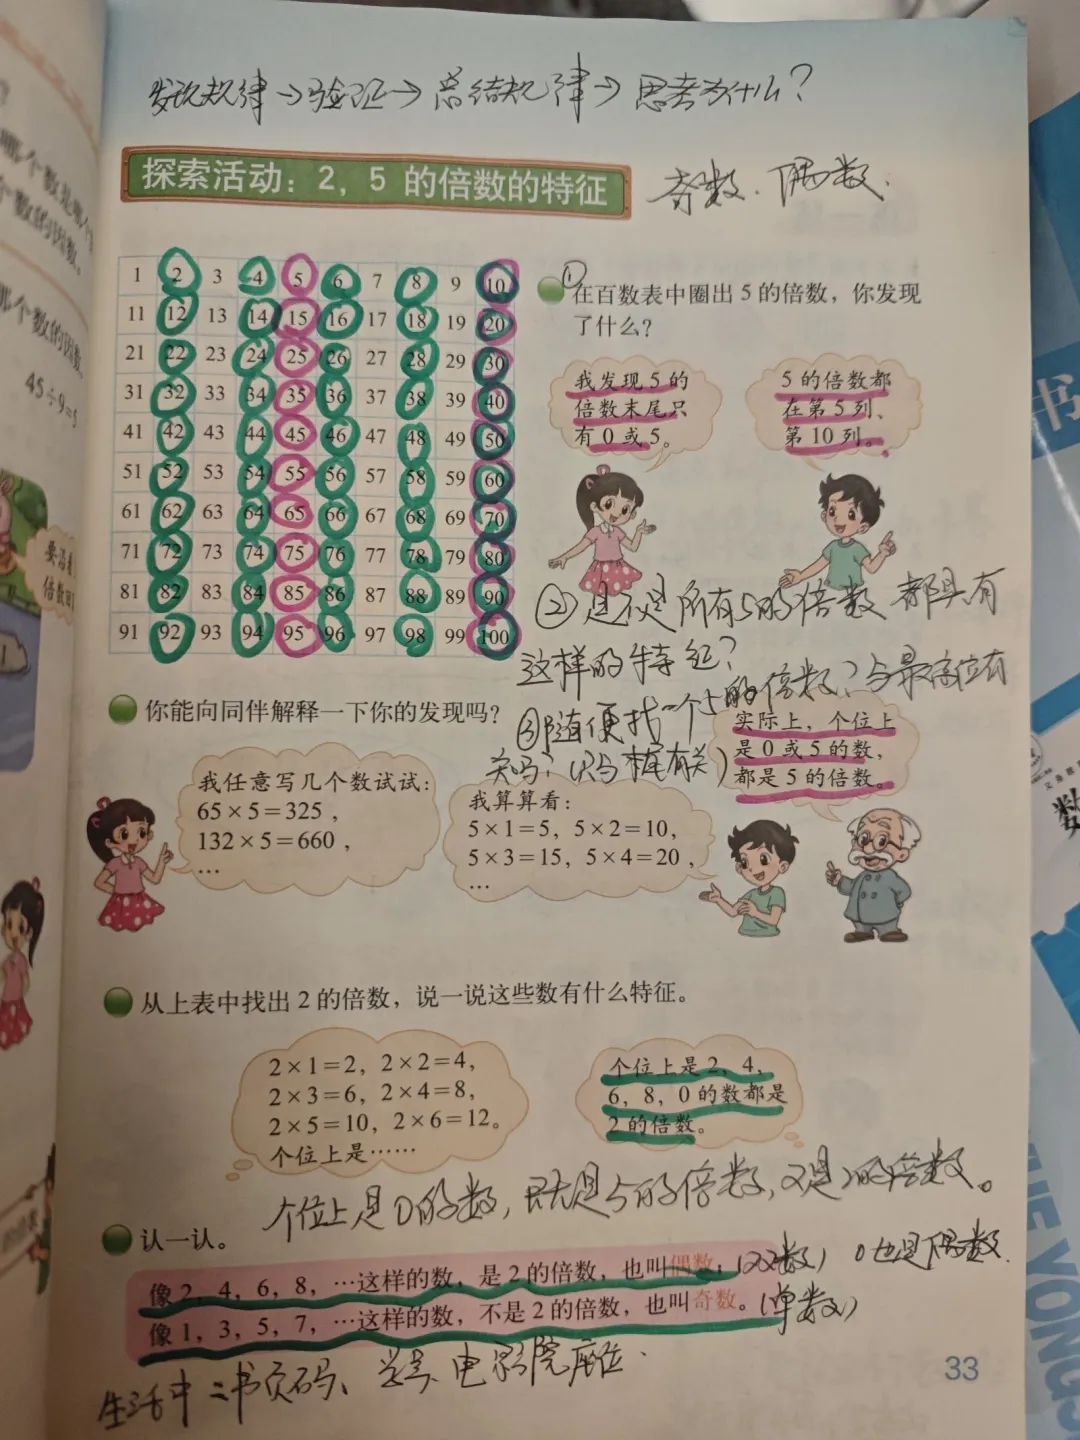 发现规律→验证→总结规律→思考为什么?
探索活动：2，5 的倍数的特征
奇数、偶数、
1 2 3 4 5 6 7 8 9 10
11 12 13 14 15 16 17 18 19 20
21 22 23 24 25 26 27 28 29 30
31 32 33 34 35 36 37 38 39 40
41 42 43 44 45 46 47 48 49 50
51 52 53 54 55 56 57 58 59 60
61 62 63 64 65 66 67 68 69 70
71 72 73 74 75 76 77 78 79 80
81 82 83 84 85 86 87 88 89 90
91 92 93 94 95 96 97 98 99 100
①
在百数表中圈出 5 的倍数，你发现
了什么？
我发现 5 的
倍数末尾只
有 0 或 5。
5 的倍数都
在第 5 列、
第 10 列。
②是不是所有5的倍数都具有
这样的特征?
③随便找一个5的倍数?与最高位有
关吗?(只与个位有关)
你能向同伴解释一下你的发现吗？
我任意写几个数试试：
65×5=325，
132×5=660，
…
我算算看：
5×1=5，5×2=10，
5×3=15，5×4=20，
…
实际上，个位上
是 0 或 5 的数，
都是 5 的倍数。
从上表中找出 2 的倍数，说一说这些数有什么特征。
2×1=2，2×2=4，
2×3=6，2×4=8，
2×5=10，2×6=12。
个位上是……
个位上是 2，4，
6，8，0 的数都是
2 的倍数。
个位上是0的数,既是5的倍数,又是2的倍数。
认一认。
像 2，4，6，8，…这样的数，是 2 的倍数，也叫偶数；(双数) 0也是偶数.
像 1，3，5，7，…这样的数，不是 2 的倍数，也叫奇数。(单数)
生活中:书页码、学号、电影院座位.
33
45÷9=5
书
数